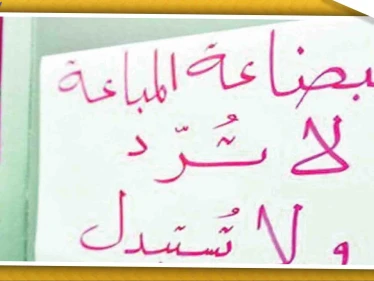 بضاعة المباعة
لا تُرّد
و لا تُستبدل